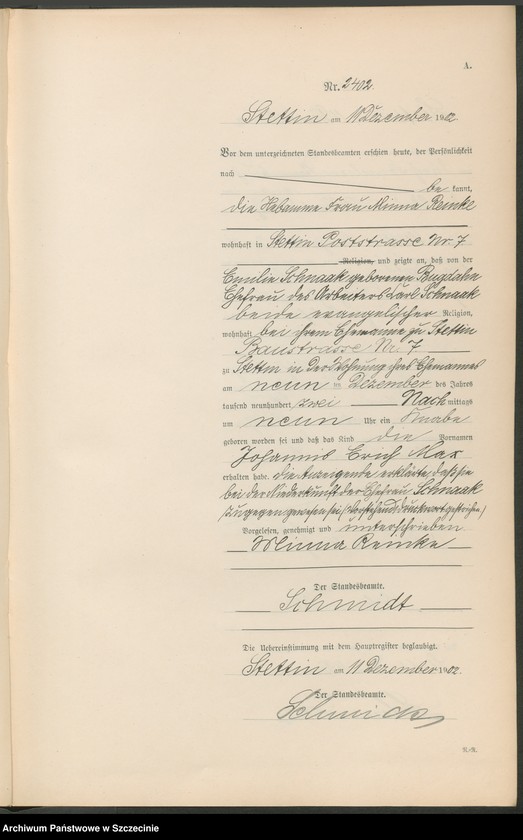 A.
Nr. 2402.
Stettin am 11 Dezember 1902
Vor dem unterzeichneten Standesbeamten erschien heute, der Persönlichkeit
nach be kannt,
die Hebamme Frau Minna Remke
wohnhaft in Stettin Poststrasse Nr. 7
Religion, und zeigte an, daß von der
Emilie Schnaak geborenen Bugdahn
Ehefrau des Arbeiters Karl Schnaak
beide evangelischer Religion,
wohnhaft bei ihrem Ehemanne zu Stettin
Baustrasse Nr 7
zu Stettin in der Wohnung ihres Ehemannes
am neun ten Dezember des Jahres
tausend neunhundert zwei Nach mittags
um neun Uhr ein Knabe
geboren worden sei und daß das Kind die Vornamen
Johannes Erich Max
erhalten habe. Die Anzeigende erklärte, daß sie
bei der Niederkunft der Ehefrau Schnaak
zugegen gewesen sei (Vorstehend Druckwort gestrichen)
Vorgelesen, genehmigt und unterschrieben
Minna Remke
Der Standesbeamte.
Schmidt
Die Uebereinstimmung mit dem Hauptregister beglaubigt.
Stettin am 11 Dezember 1902
Der Standesbeamte.
Schmidt
Archiwum Państwowe w Szczecinie